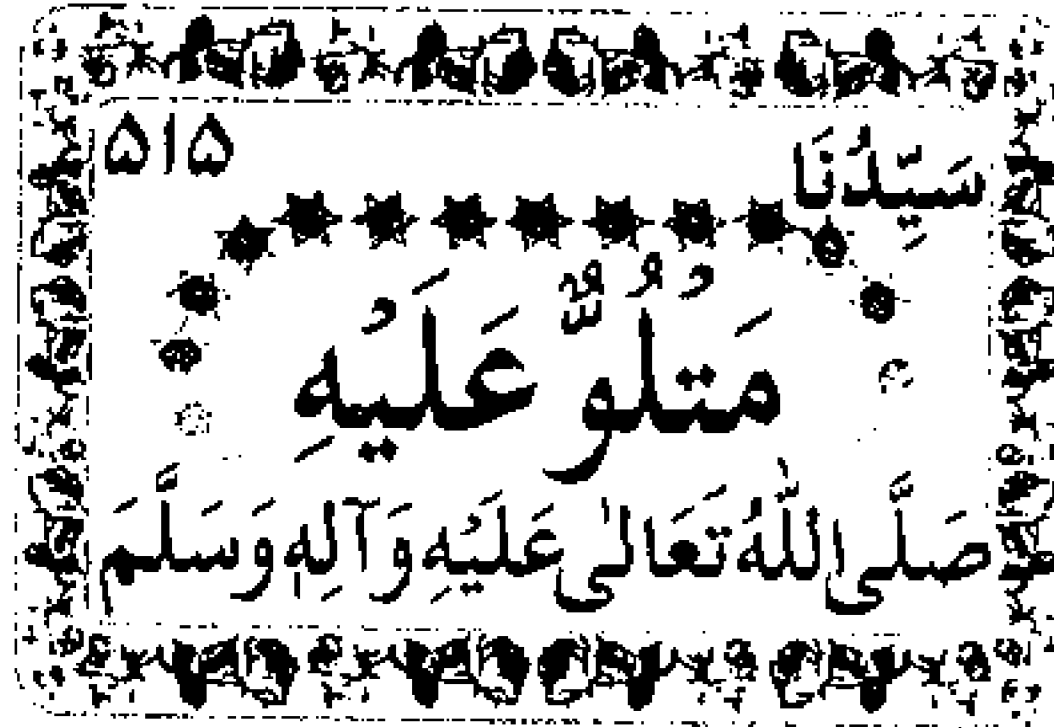 سَيِّدُنَا ۵۱۵
مَتْلُوٌّ عَلَيْهِ
صَلَّى اللّٰهُ تَعَالٰى عَلَيْهِ وَآلِهٖ وَسَلَّمَ